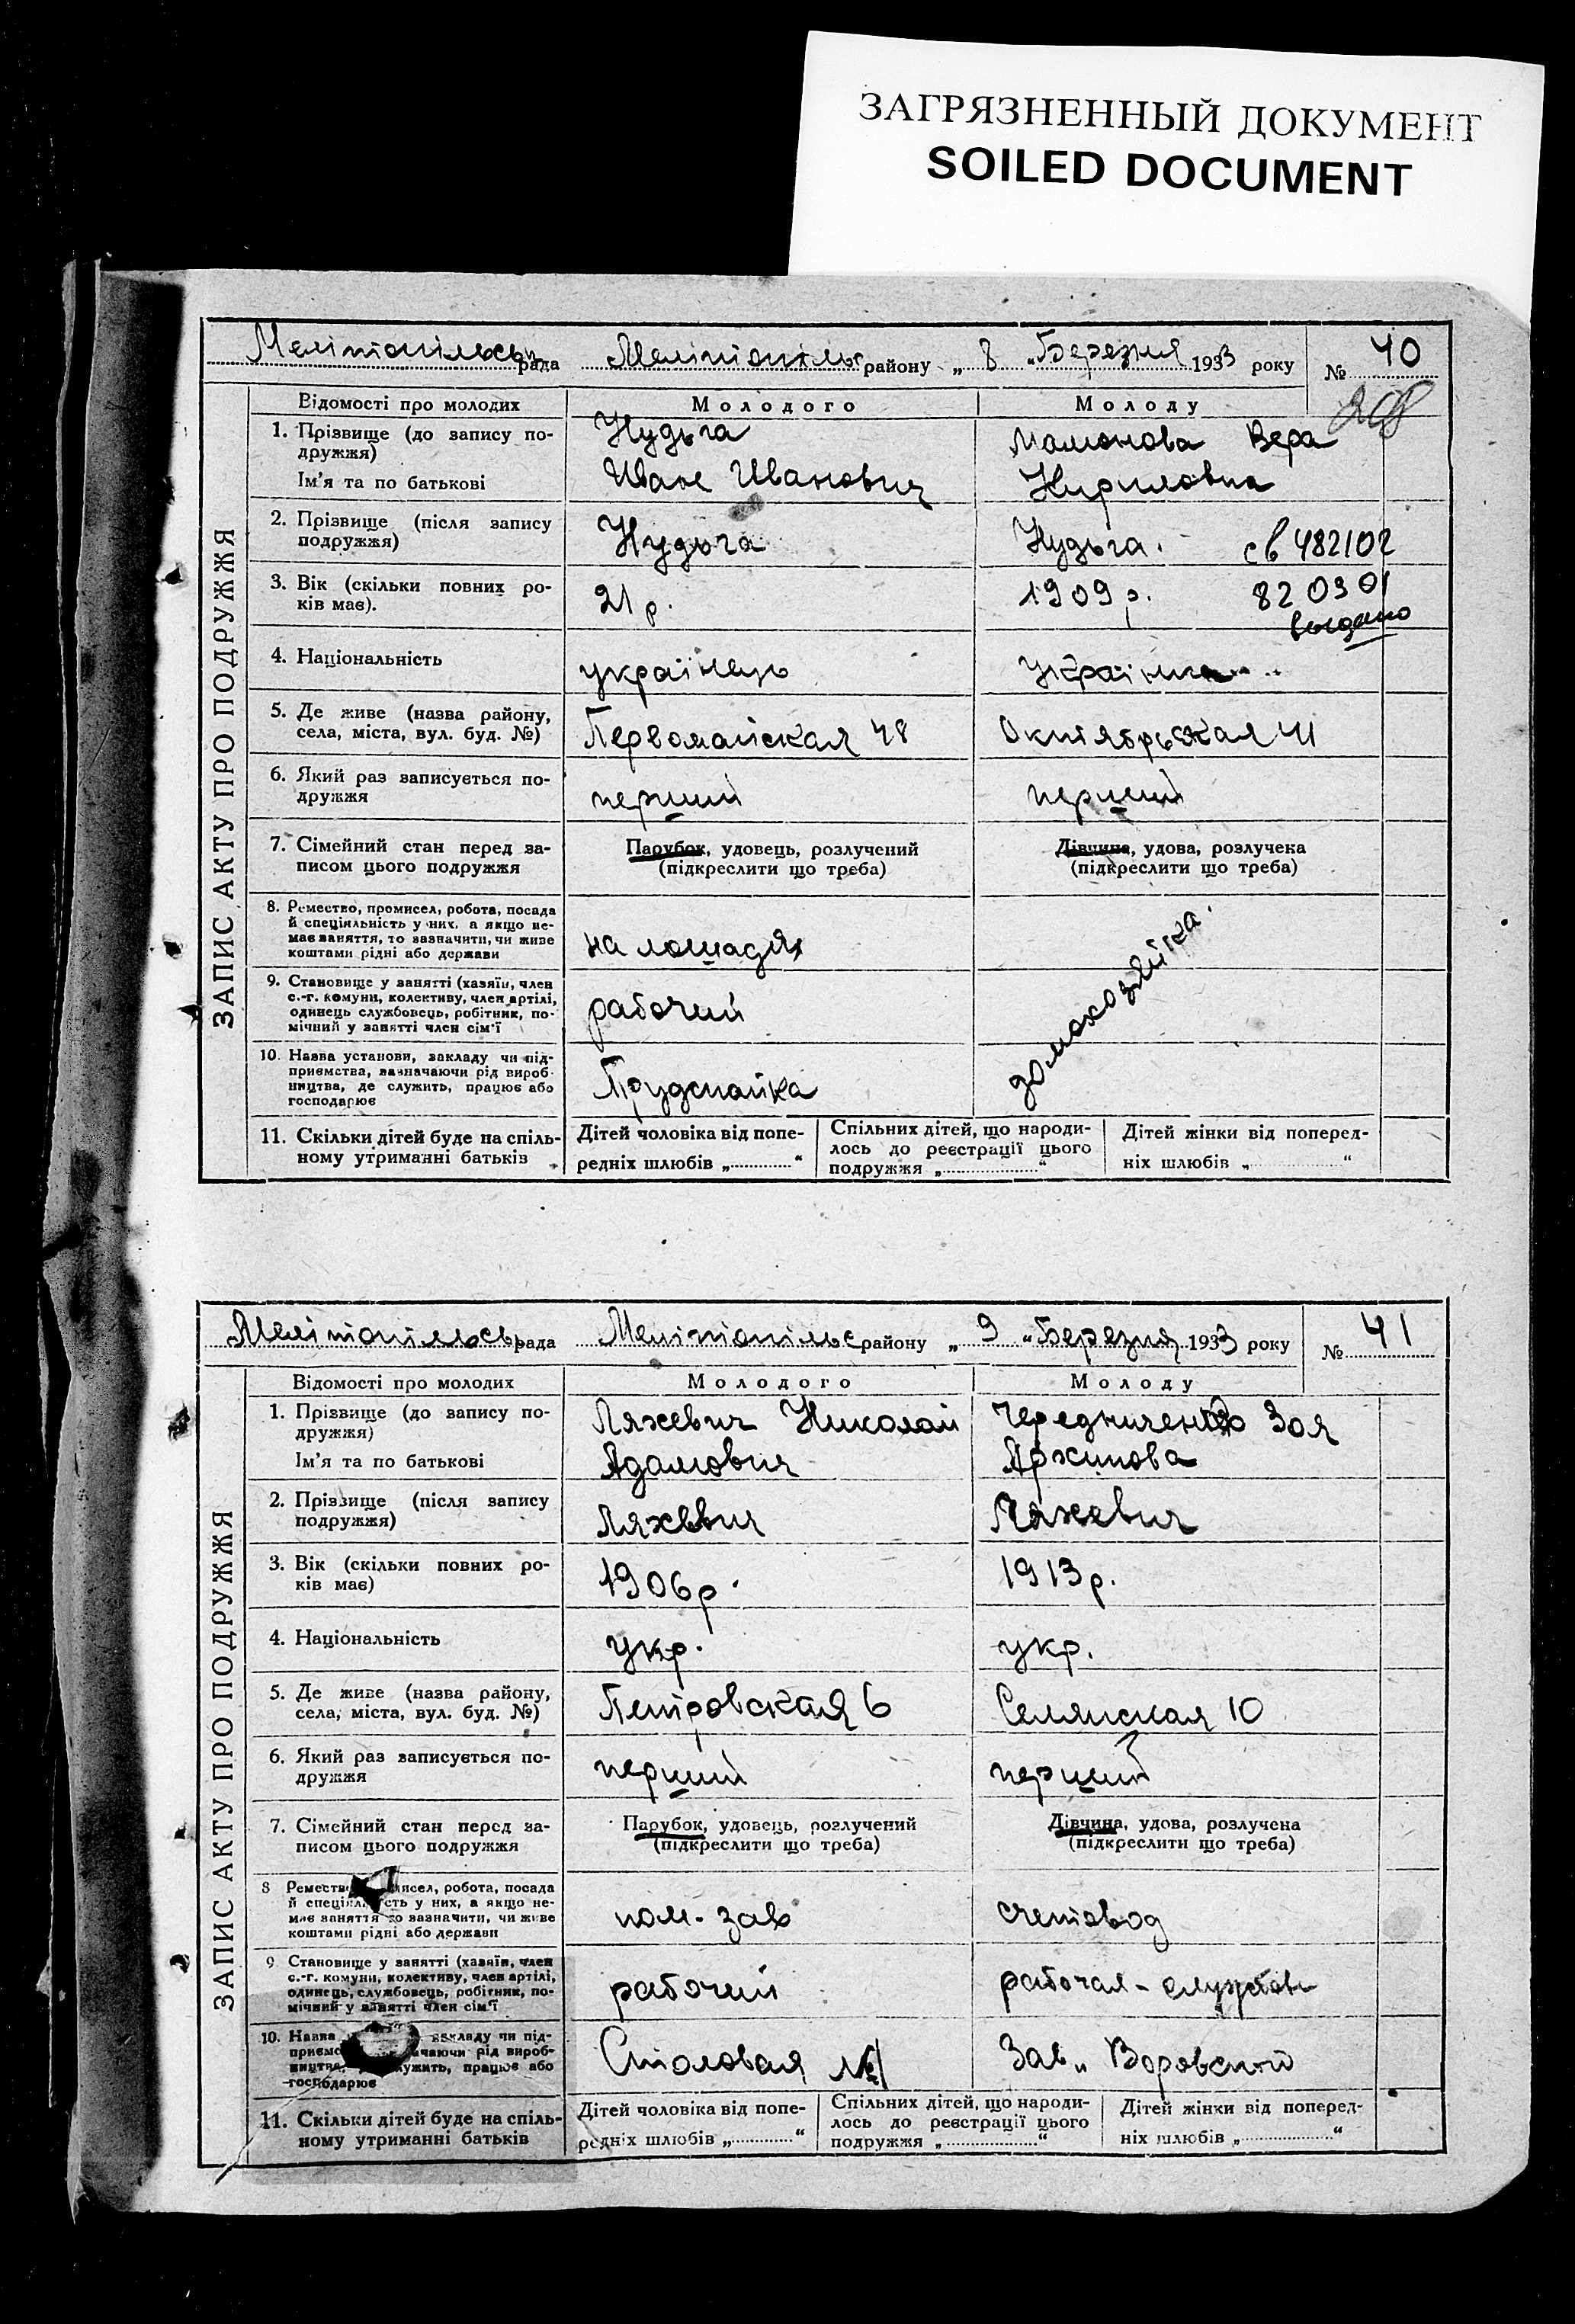 ЗАГРЯЗНЕННЫЙ ДОКУМЕНТ
SOILED DOCUMENT
ЗАПИС АКТУ ПРО ПОДРУЖЖЯ
Мелітопільськ рада Мелітопільс району „ 8 „ Березня 1933 року № 40
208
Відомості про молодих Молодого Молоду
1. Прізвище (до запису по- Нудьга Мамонова Вера
дружжя)
Ім'я та по батькові Иван Иванович Кириловна
2. Прізвище (після запису Нудьга Нудьга. св 482102
подружжя)
3. Вік (скільки повних ро- 21 р. 1909 р. 820301
ків має). выдано
4. Національність українець українка
5. Де живе (назва району, Первомайская 48 Октябрьская 41
села, міста, вул. буд. №)
6. Який раз записується по- перший перший
дружжя
7. Сімейний стан перед за- Парубок, удовець, розлучений Дівчина, удова, розлучека
писом цього подружжя (підкреслити що треба) (підкреслити що треба)
8. Ремество, промисел, робота, посада
й спеціяльність у них, а якщо не-
має заняття, то зазначити, чи живе на лошадях домохозяйка.
коштами рідні або держави
9. Становище у занятті (хазяїн, член
с.-г. комуни, колективу, член артілі,
одинець службовець, робітник, по- рабочий
мічний у занятті член сім'ї
10. Назва установи, закладу чи під-
приємства, зазначаючи рід вироб-
ництва, де служить, працює або
господарює
11. Скільки дітей буде на спіль- Дітей чоловіка від попе- Спільних дітей, що народи- Дітей жінки від поперед-
ному утриманні батьків редніх шлюбів „ “ лось до реєстрації цього ніх шлюбів „ “
подружжя „ “
ЗАПИС АКТУ ПРО ПОДРУЖЖЯ
Мелітопільськ рада Мелітопільс району „ 9 „ Березня 1933 року № 41
Відомості про молодих Молодого Молоду
1. Прізвище (до запису по- Ляхевич Николай Чередниченко Зоя
дружжя)
Ім'я та по батькові Адамович Архипова
2. Прізвище (після запису Ляхевич Ляхевич
подружжя)
3. Вік (скільки повних ро- 1906 р. 1913 р.
ків має)
4. Національність укр. укр.
5. Де живе (назва району, Петровская 6 Селянская 10
села, міста, вул. буд. №)
6. Який раз записується по- перший перший
дружжя
7. Сімейний стан перед за- Парубок, удовець, розлучений Дівчина, удова, розлучена
писом цього подружжя (підкреслити що треба) (підкреслити що треба)
8 робота, посада
й у них, а якщо не-
має заняття то зазначити, чи живе пом. зав счетовод
коштами рідні або держави
9. Становище у занятті (хазяїн, член
с.-г. комуни, колективу, член артілі,
одинець, службовець, робітник, по- рабочий рабочая - службов
мічний у занятті член сім'ї
10. Назва закладу чи під-
вироб- Столовая №1 Зав „ Воровский
працює або
господарює
11. Скільки дітей буде на спіль- Дітей чоловіка від попе- Спільних дітей, що народи- Дітей жінки від поперед-
ному утриманні батьків редніх шлюбів „ “ лось до реєстрації цього ніх шлюбів „ “
подружжя „ “